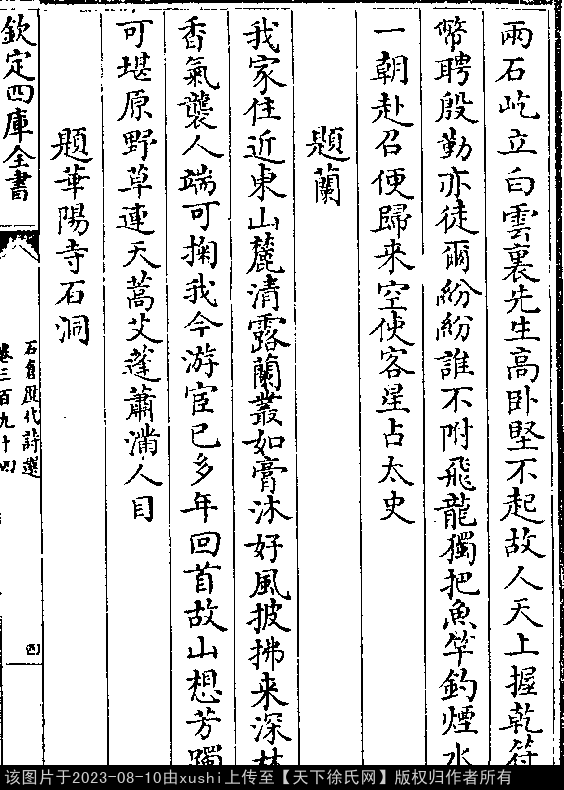 兩石屹立白雲裏先生高卧堅不起故人天上握乾符
幣聘殷勤亦徒爾紛紛誰不附飛龍獨把魚竿釣煙水
一朝赴召便歸来空使客星占太史
題蘭
我家住近東山麓清露蘭叢如膏沐好風披拂来深林
香氣襲人端可掬我今游宦已多年回首故山想芳躅
可堪原野草連天蒿艾蓬蕭滿人目
題華陽寺石洞
欽定四庫全書
石倉歷代詩選
卷三百九十四
四
该图片于2023-08-10由xushi上传至【天下徐氏网】版权归作者所有